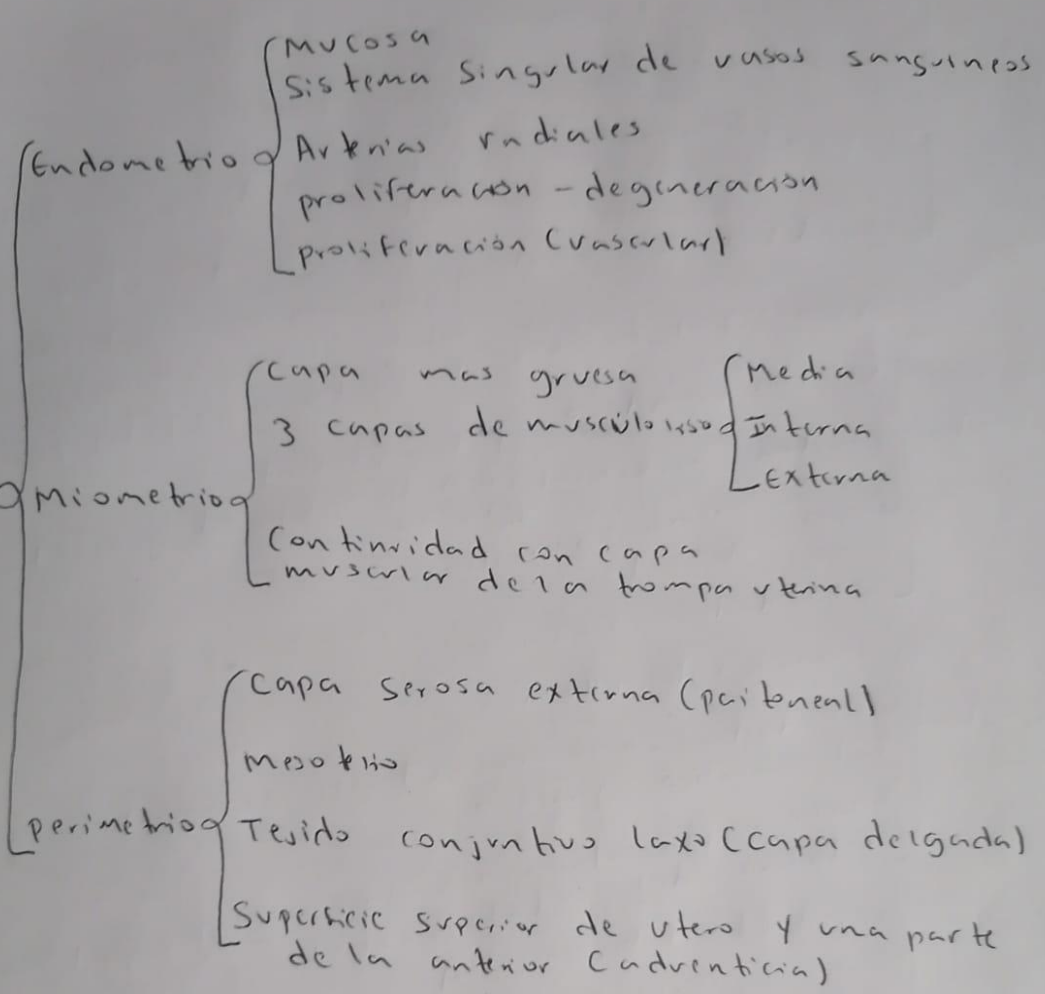 Mucosa
Sistema singular de vasos sanguineos
Endometrio
Arterias radiales
proliferación - degeneración
proliferación (vascular)
Capa mas gruesa
3 capas de musculo liso
Media
Interna
Externa
Miometrio
Continuidad con capa
muscular de la trompa uterina
Capa serosa externa (peritoneal)
mesotelio
perimetrio
Tejido conjuntivo laxo (capa delgada)
Superficie superior de utero y una parte
de la anterior (adventicia)